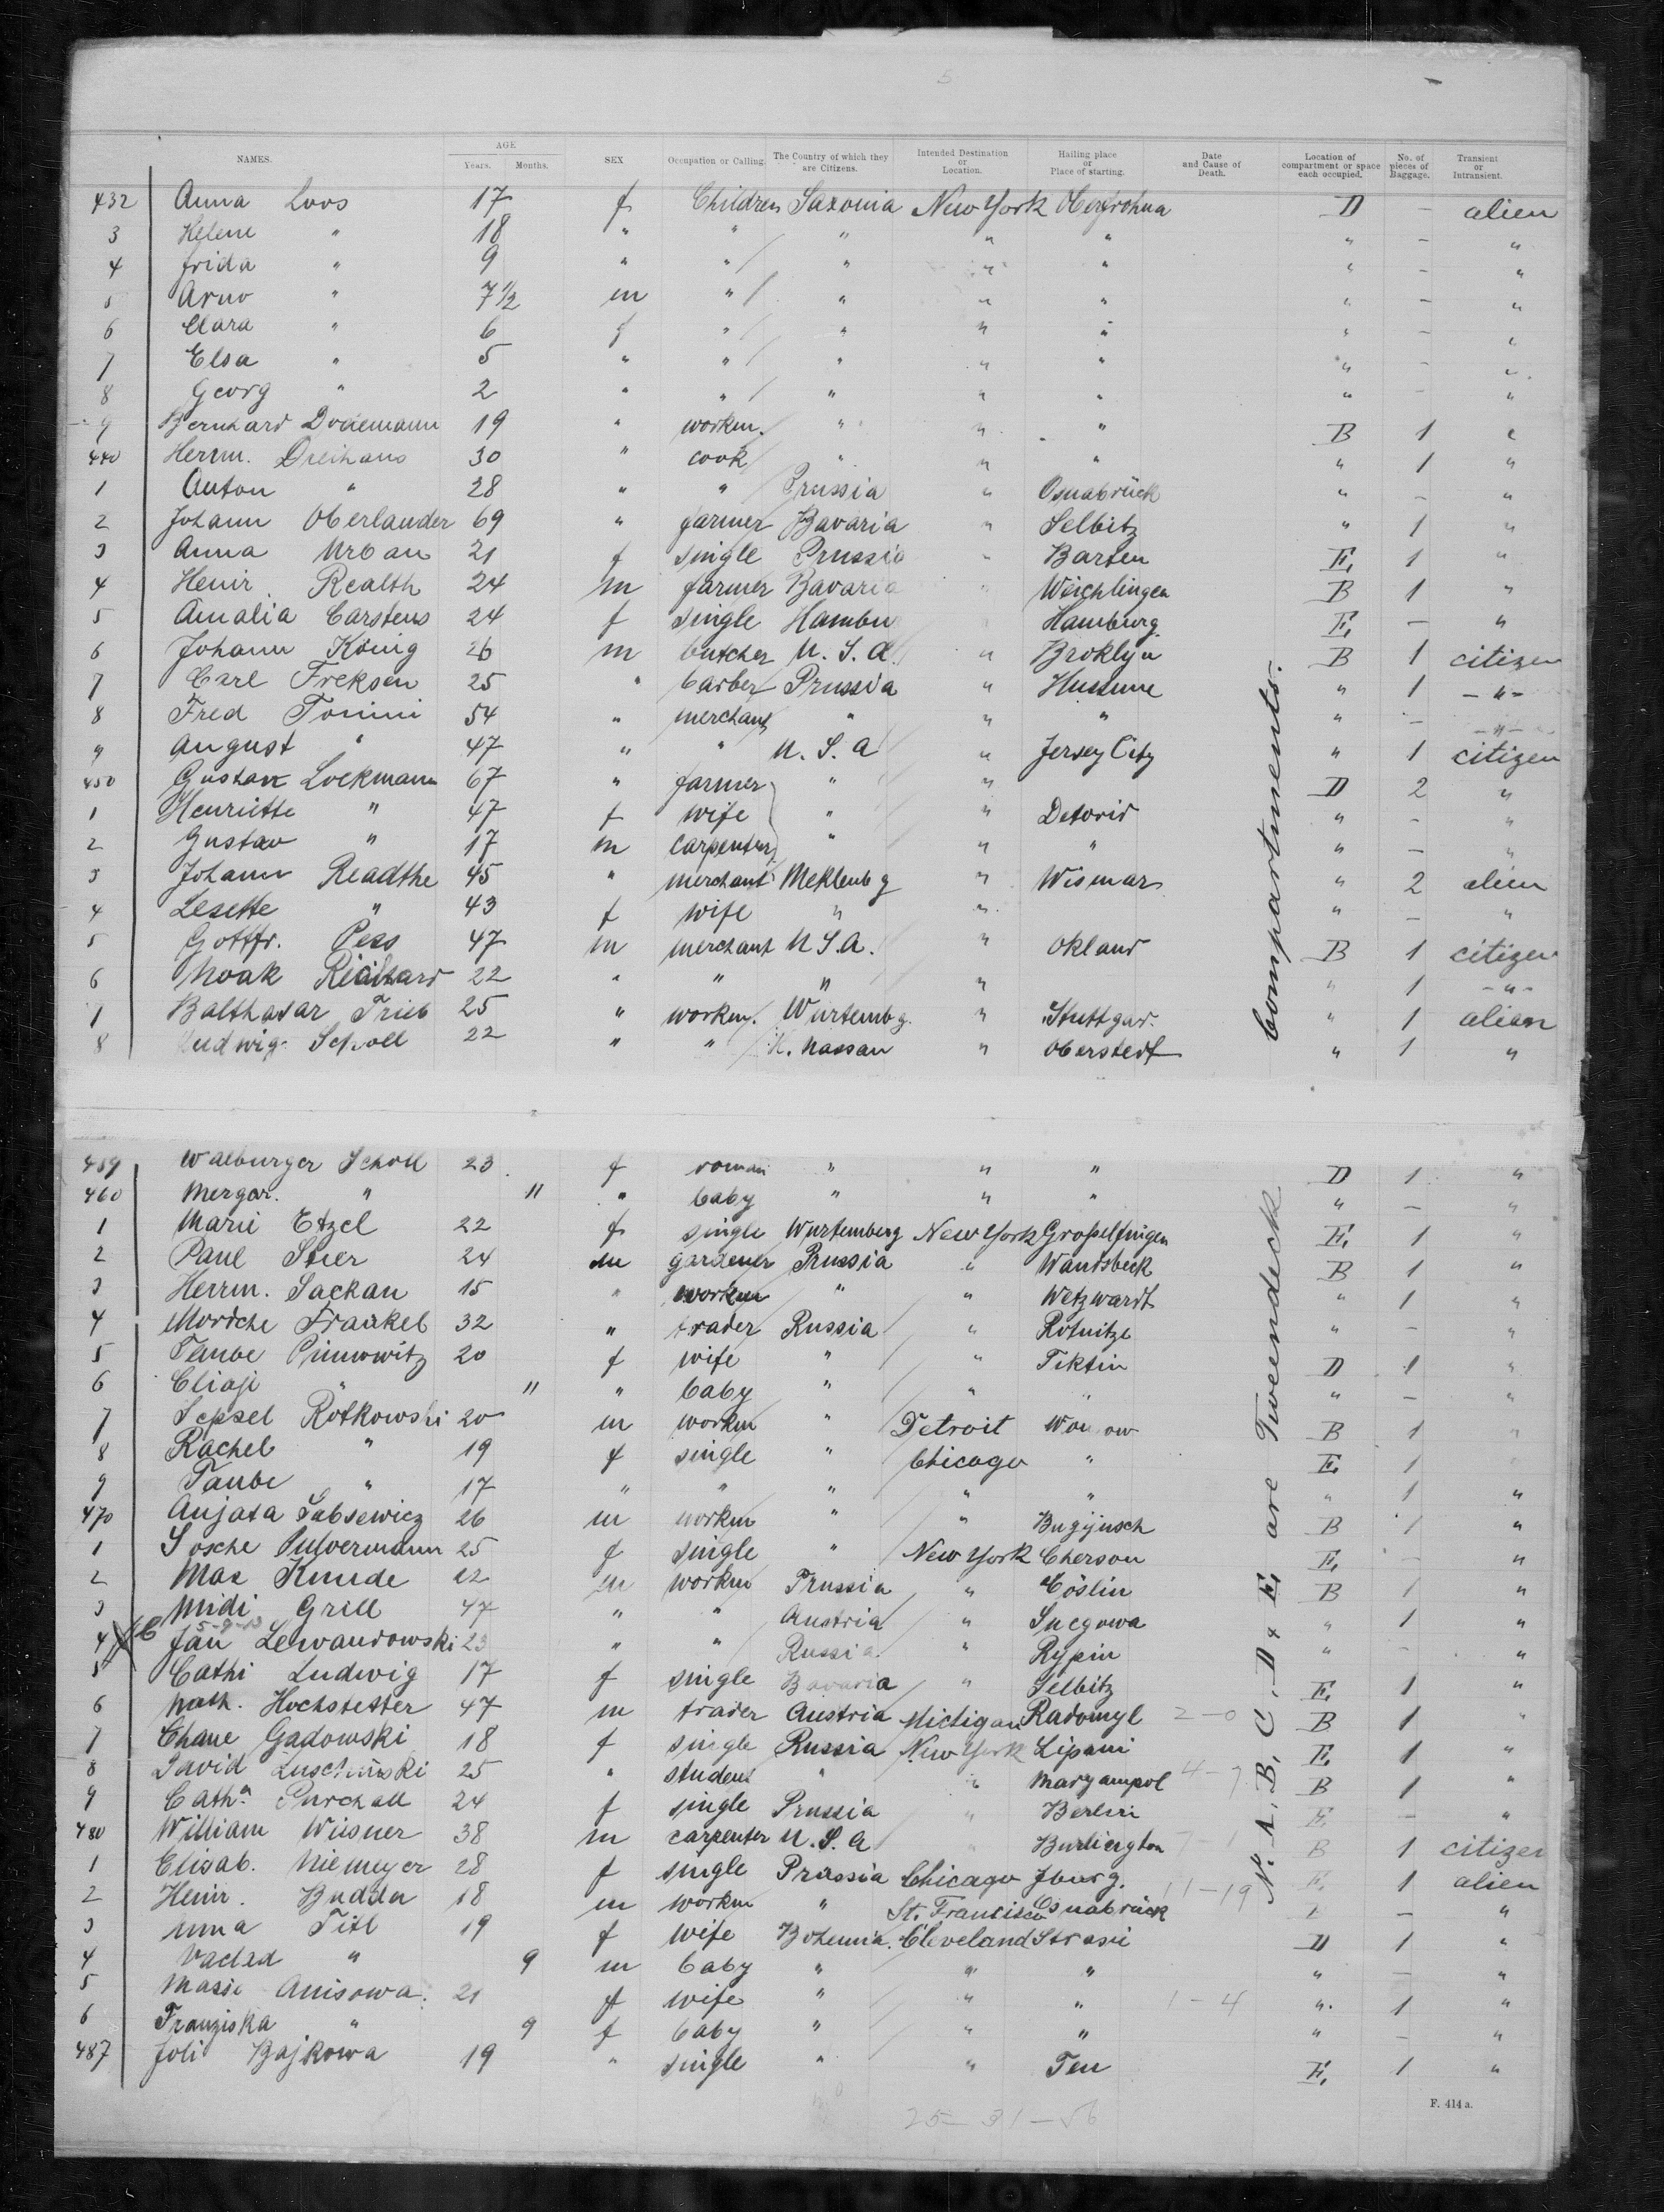 5
NAMES. AGE Years. Months. SEX Occupation or Calling. The Country of which they are Citizens. Intended Destination or Location. Hailing place or Place of starting. Date and Cause of Death. Location of compartment or space each occupied. No. of pieces of Baggage. Transient or Intransient.
432 Anna Loos 17 f Children Saxonia New York Oberfrohna D – alien
3 Helene " 18 " " " " " " – "
4 Frida " 9 " " " " " " – "
5 Arno " 7½ m " " " " " – "
6 Clara " 6 f " " " " " – "
7 Elsa " 5 " " " " " " – "
8 Georg " 2 " " " " " " – "
9 Bernhard Dodemann 19 " workm. " " " B 1 "
440 Herrm. Dreihaus 30 " cook " " " " 1 "
1 Anton " 28 " " Prussia " Osnabrück " – "
2 Johann Oberlander 69 " farmer Bavaria " Selbitz " 1 "
3 Anna Urban 21 f single Prussia " Barten E, 1 "
4 Heinr. Realth 24 m farmer Bavaria " Weichlingen B 1 "
5 Amalia Carstens 24 f single Hambu " Hamburg. E, – "
6 Johann König 26 m butcher U. S. A. " Broklyn B 1 citizen
7 Carl Freksen 25 " barber Prussia " Hussume " 1 – " –
8 Fred Tonini 54 " merchant " " " " – – " –
9 August " 47 " " U. S. A " Jersey City " 1 citizen
450 Gustav Lockmann 67 " farmer " " D 2 "
1 Henriette " 47 f wife " " Detorid " – "
2 Gustav " 17 m carpenter " " " " – "
3 Johann Readthe 45 " merchant Meklenbg " Wismar " 2 alien
4 Lesette " 43 f wife " " " – "
5 Gottfr. Pess 47 m merchant U S. A. " Okland B 1 citizen
6 Noak Richard 22 " " " " " 1 – " –
7 Balthasar Trieb 25 " workm. Würtembg. " Stuttgar. " 1 alien
8 Ludwig Scholl 22 " " H. Nassau " Oberstedt " 1 "
459 Walburger Scholl 23. f woman " " " D 1 "
460 Mergar. " 11 " baby " " " " – "
1 Marie Etzel 22 f single Wurtemberg New York Groselfingen E, 1 "
2 Paul Stier 24 m gardener Prussia " Wantsbeck B 1 "
3 Herrm. Sackan 15 " workm " " Wetzwardt " 1 "
4 Mordche Frankel 32 " trader Russia " Rotnitze " – "
5 Taube Pinnowitz 20 f wife " " Tiktin D 1 "
6 Cliaji " 11 " baby " " " " – "
7 Sepsel Rotkowski 20 m workm " Detroit B 1 "
8 Rachel " 19 f single " Chicago " E, 1
9 Taube " 17 " " " " " " 1 "
470 Anjata Sabsewicz 26 m workm " " Bugijusch B 1 "
1 Sosche Pulvermann 25 f single " New York Cherson E, – "
2 Max Kunde 22 m workm Prussia " Cöslin B 1 "
3 Midi Grill 47 " " Austria " Sucgowa " 1 "
4 Jan Lewandowski 23 " " Russia " Rypin " – "
5 Cathi Ludwig 17 f single Bavaria " Selbitz E, 1 "
6 Nath. Hochstetter 47 m trader Austria Michigan Radomyl 2–0 B 1 "
7 Chane Gadowski 18 f single Russia New York Lipani E, 1 "
8 David Luschinski 25 " student " " Maryampol 4–7 B 1 "
9 Catha Purchall 24 f single Prussia " Berlin E, – "
480 William Wiesner 38 m carpenter U. S. A " Burlington 7–1 B 1 citizen
1 Elisab. Niemeyer 28 f single Prussia Chicago Jburg. E, 1 alien
2 Heinr. Budde 18 m workm " St. Francisco Osnabrück 11–19 – "
3 Anna Titl 19 f wife Bohemia. Cleveland Strasic D 1 "
4 Vaclad " 9 m baby " " " " – "
5 Masie Anisowa 21 f wife " " " 1–4 " 1 "
6 Franziska " 9 f baby " " " " – "
487 Joli Bajkowa 19 " single " " Ten E, 1 "
No. A, B, C, D & E, are Tweendeck compartments.
25–31–56
F. 414 a.